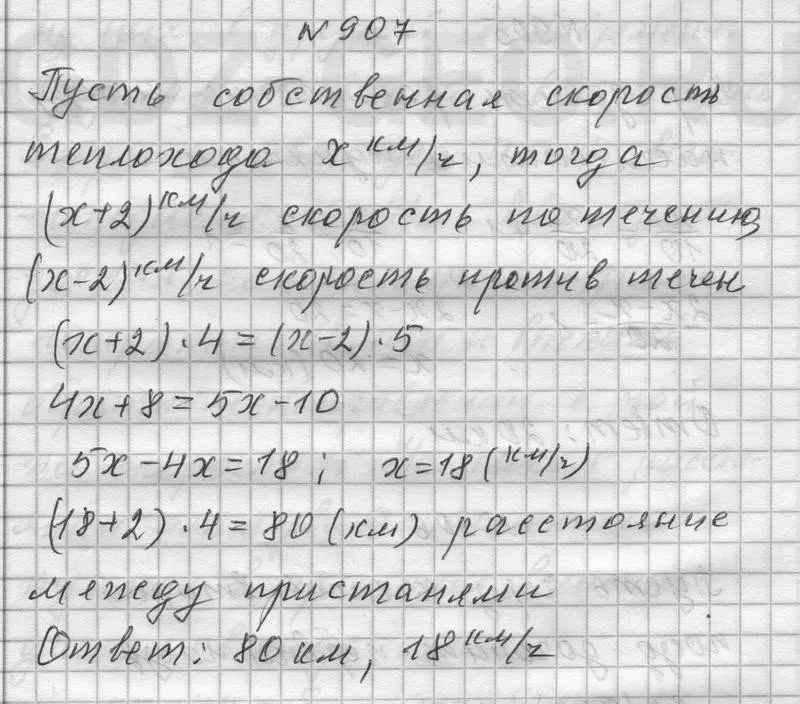 № 907
Пусть собственная скорость
теплохода x км/ч, тогда
(x+2) км/ч скорость по течению,
(x-2) км/ч скорость против течен
(x+2)·4=(x-2)·5
4x+8=5x-10
5x-4x=18; x=18 (км/ч)
(18+2)·4=80 (км) расстояние
между пристанями
Ответ: 80 км, 18 км/ч